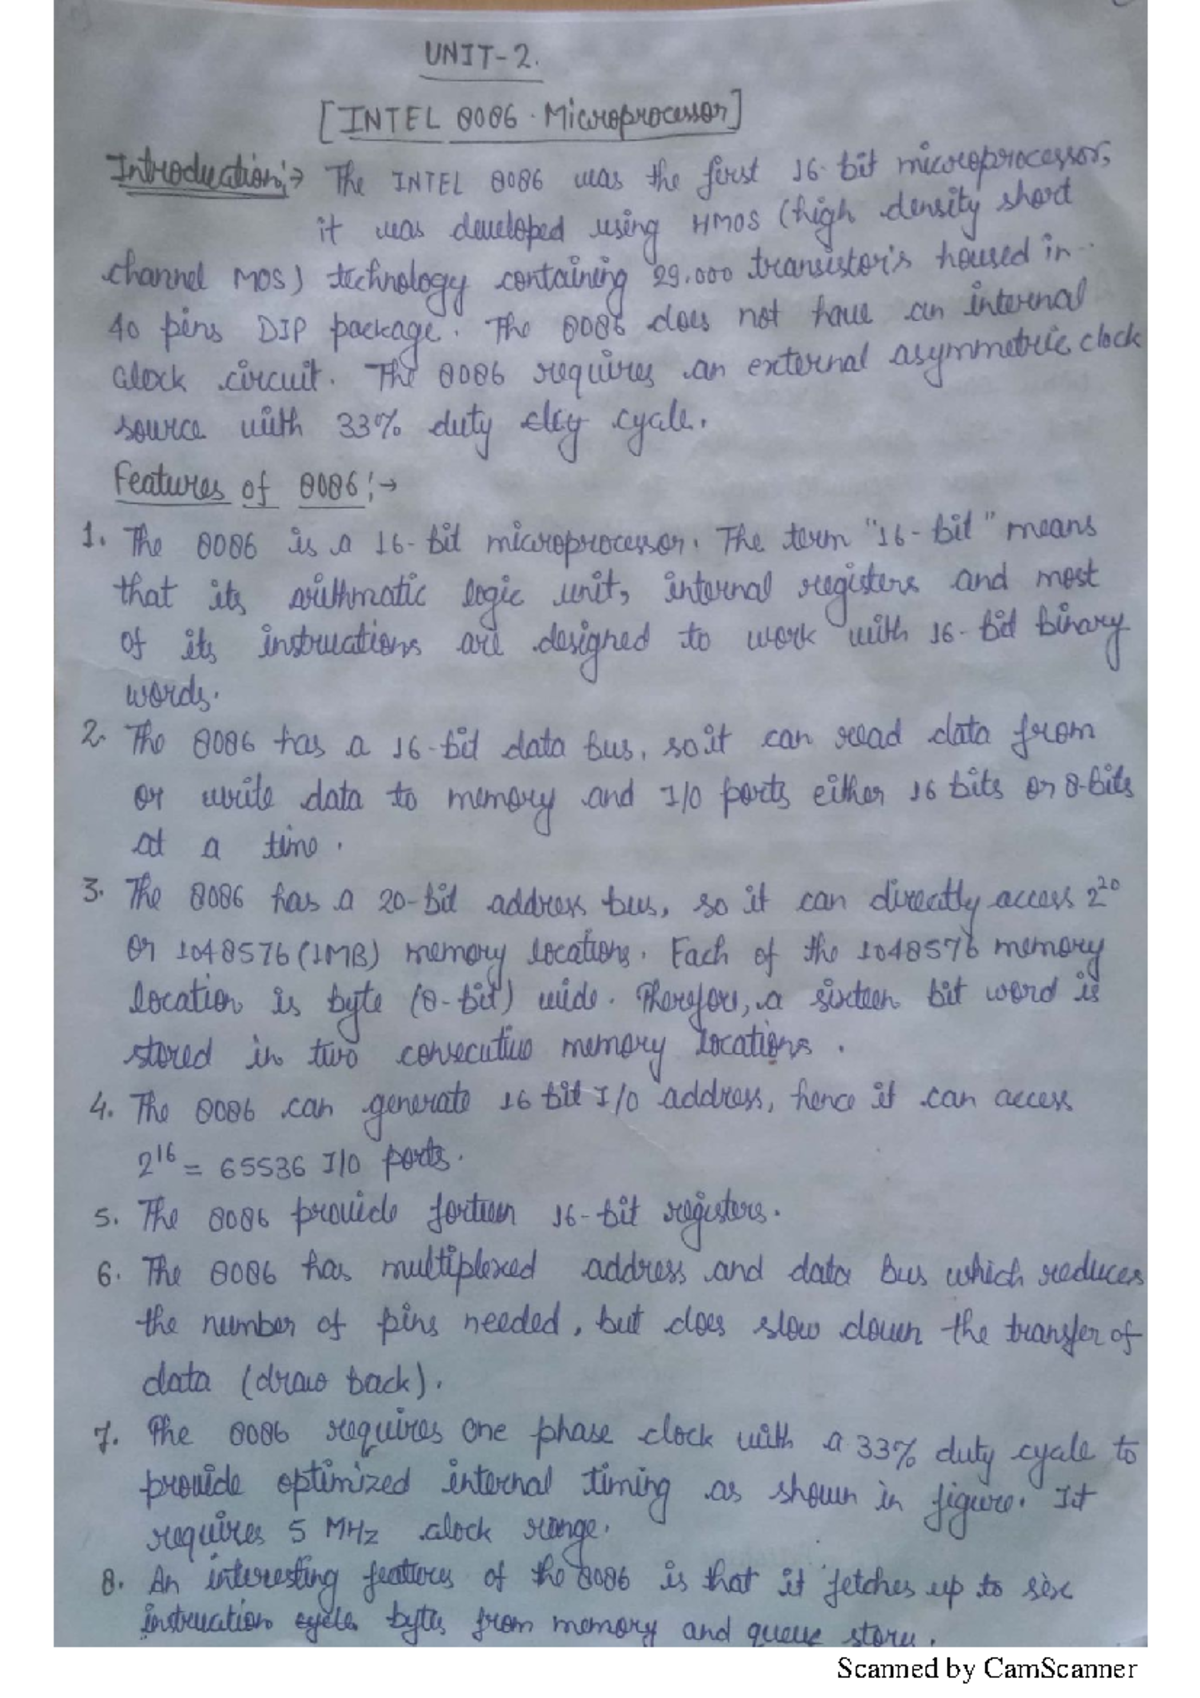 UNIT-2.
[INTEL 8086 . Microprocessor]
Introduction:→ The INTEL 8086 was the first 16-bit microprocessor,
it was developed using HMOS (high density short
channel MOS) technology containing 29.000 transistor's housed in
40 pins DIP package. The 8086 does not have an internal
clock circuit. The 8086 requires an external asymmetric clock
source with 33% duty cycle.
Features of 8086:→
1. The 8086 is a 16-bit microprocessor. The term "16-bit" means
that its arithmatic logic unit, internal registers and most
of its instructions are designed to work with 16-bit binary
words.
2. The 8086 has a 16-bit data bus, so it can read data from
or write data to memory and I/O ports either 16 bits or 8-bits
at a time.
3. The 8086 has a 20-bit address bus, so it can directly access 2²⁰
or 1048576 (1MB) memory locations. Each of the 1048576 memory
location is byte (8-bit) wide. Therefore, a sixteen bit word is
stored in two consecutive memory locations.
4. The 8086 can generate 16 bit I/O address, hence it can access
2¹⁶ = 65536 I/O ports.
5. The 8086 provide forteen 16-bit registers.
6. The 8086 has multiplexed address and data bus which reduces
the number of pins needed, but does slow down the transfer of
data (draw back).
7. The 8086 requires one phase clock with a 33% duty cycle to
provide optimized internal timing as shown in figure. It
requires 5 MHz clock range.
8. An interesting features of the 8086 is that it fetches up to six
instruction bytes from memory and queue store.
Scanned by CamScanner